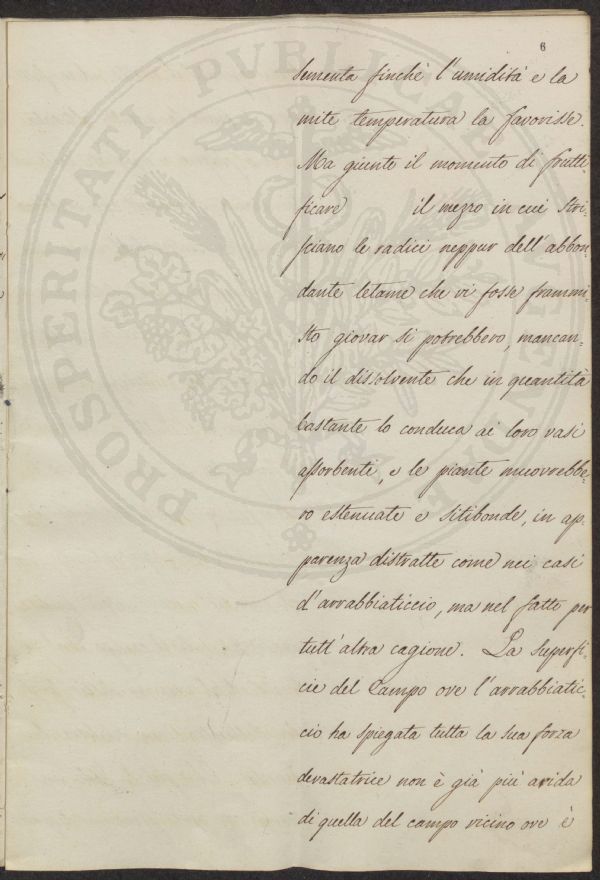 6
sementa finchè l'umidità e la
mite temperatura la favorisse.
Ma giunto il momento di frutti-
ficare il mezzo in cui stri-
sciano le radici neppur dell'abbon-
dante letame che vi fosse frammi-
sto giovar si potrebbero, mancan-
do il dissolvente che in quantità
bastante lo conduca ai loro vasi
assorbenti, e le piante muovrebbe-
ro estenuate e sitibonde, in ap-
parenza distratte come nei casi
d'arrabbiaticcio, ma nel fatto per
tutt'altra cagione. La superfi-
cie del Campo ove l'arrabbiatic-
cio ha spiegata tutta la sua forza
devastatrice non è già più arida
di quella del campo vicino ove è
PROSPERITATI PVBLICAE AVGENDAE